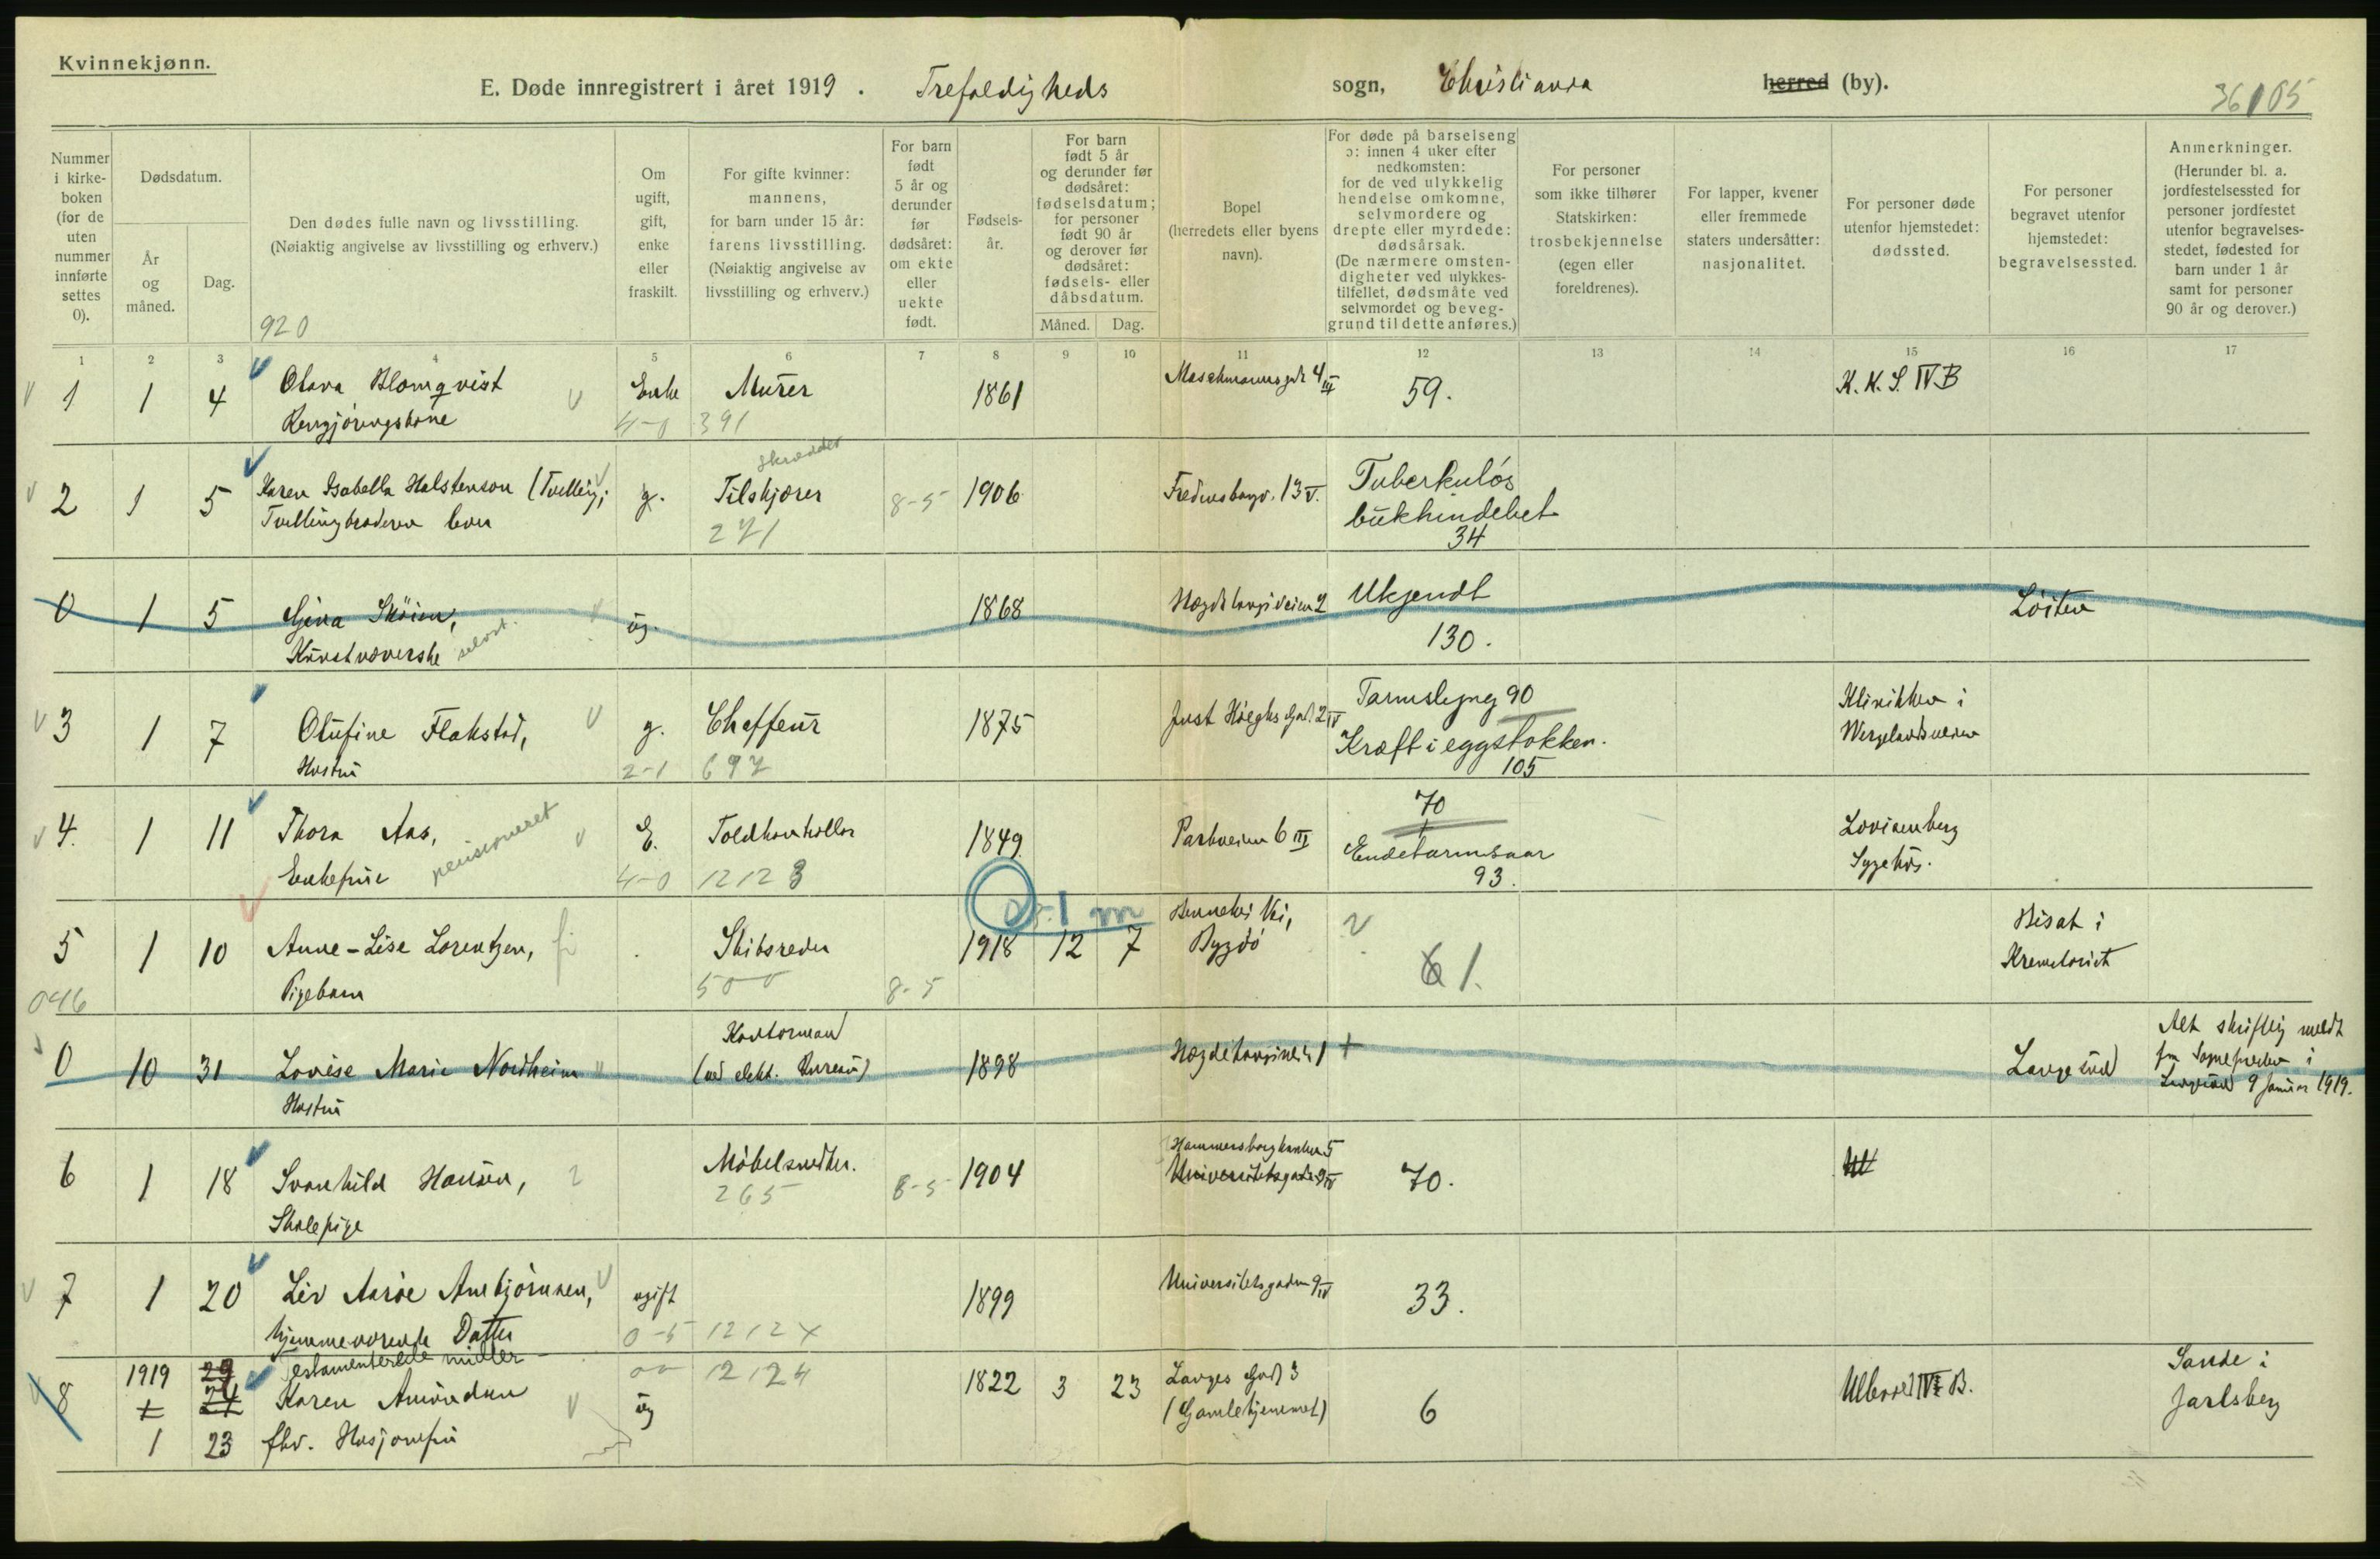 Kvinnekjønn.
E. Døde innregistrert i året 1919 . Trefoldigheds sogn, Christiania herred (by).
36105
Nummer i kirke-boken (for de uten nummer innførte settes 0).
Dødsdatum.
År og måned.
Dag.
Den dødes fulle navn og livsstilling.
(Nøiaktig angivelse av livsstilling og erhverv.)
920
Om ugift, gift, enke eller fraskilt.
For gifte kvinner: mannens, for barn under 15 år: farens livsstilling. (Nøiaktig angivelse av livsstilling og erhverv.)
For barn født 5 år og derunder før dødsåret: om ekte eller uekte født.
Fødsels-år.
For barn født 5 år og derunder før dødsåret: fødselsdatum; for personer født 90 år og derover før dødsåret: fødsels- eller dåbsdatum.
Måned. Dag.
Bopel (herredets eller byens navn).
For døde på barselseng ɔ: innen 4 uker efter nedkomsten: for de ved ulykkelig hendelse omkomne, selvmordere og drepte eller myrdede: dødsårsak. (De nærmere omsten-digheter ved ulykkes-tilfellet, dødsmåte ved selvmordet og beveg-grund til dette anføres.)
For personer som ikke tilhører Statskirken: trosbekjennelse (egen eller foreldrenes).
For lapper, kvener eller fremmede staters undersåtter: nasjonalitet.
For personer døde utenfor hjemstedet: dødssted.
For personer begravet utenfor hjemstedet: begravelsessted.
Anmerkninger. (Herunder bl. a. jordfestelsessted for personer jordfestet utenfor begravelses-stedet, fødested for barn under 1 år samt for personer 90 år og derover.)
1 2 3 4 5 6 7 8 9 10 11 12 13 14 15 16 17
1 1 4 Olava Blomqvist Enke Murer 1861 4 III 59. K. K. S. IV B
Rengjøringskone 4-0 391
Skrædder
2 1 5 Karen Isabella Halstenson (Tvilling; g. Tilskjærer 8-5 1906 13 V. Tuberkuløs
Tvillingbroderen lever 271 bukhindebet
34
0 1 5 Gina Skøien, ug. 1868 Hægdehaugsveien 2 Ukjendt Løiten
Kunstvæverske selvst. 130.
3 1 7 Olufine Flakstad, g. Chaffeur 1875 Just Høeghs Gad. 2 IV Tarmslyng 90 Klinikken i
Hustru 2-1 697 Kræft i eggstokken. Wergelandsveien
105
4. 1 11 Thora Aas, E. Toldkontrollør 1849 Parkveien 6 III 70 Lovisenberg
Enkefrue pensioneret 4-0 12123 Endetarmsaar Sygehus.
93.
1 m
5 1 10 Anne-Lise Lorentzen, Skibsreder 1918 12 7 Bennekes Vei, Bisat i
Pigebarn 500 8-5 Bygdø 61. Krematoriet
046
0 10 31 Lovise Marie Nordheim Kontormand 1898 Hægdehaugsvei 1 + Langesund Alt skriftlig meldt
Hustru (ved elekt. Bureau) fra Sognepresten i
Langesund 9 Januar 1919.
6 1 18 Svanhild Hansen, Møbelsnedker. 8-5 1904 Hammersborgbakken 5
Skolepige 265 Universitetsgaden 9 IV 70.
7 1 20 Liv Aarøe Arnbjørnsen, ugift 1899 Universitetsgaden 9 IV 33.
hjemmeværende Datter 0-5 1212x
Testamenterede midler 12124
1919 29
8 1 24 Karen Amundsen ug 1822 3 23 Langes Gad. 3 6 Ullevaal IV B. Sande i
1 23 fhv. Husjomfru (Gamlehjemmet) Jarlsberg